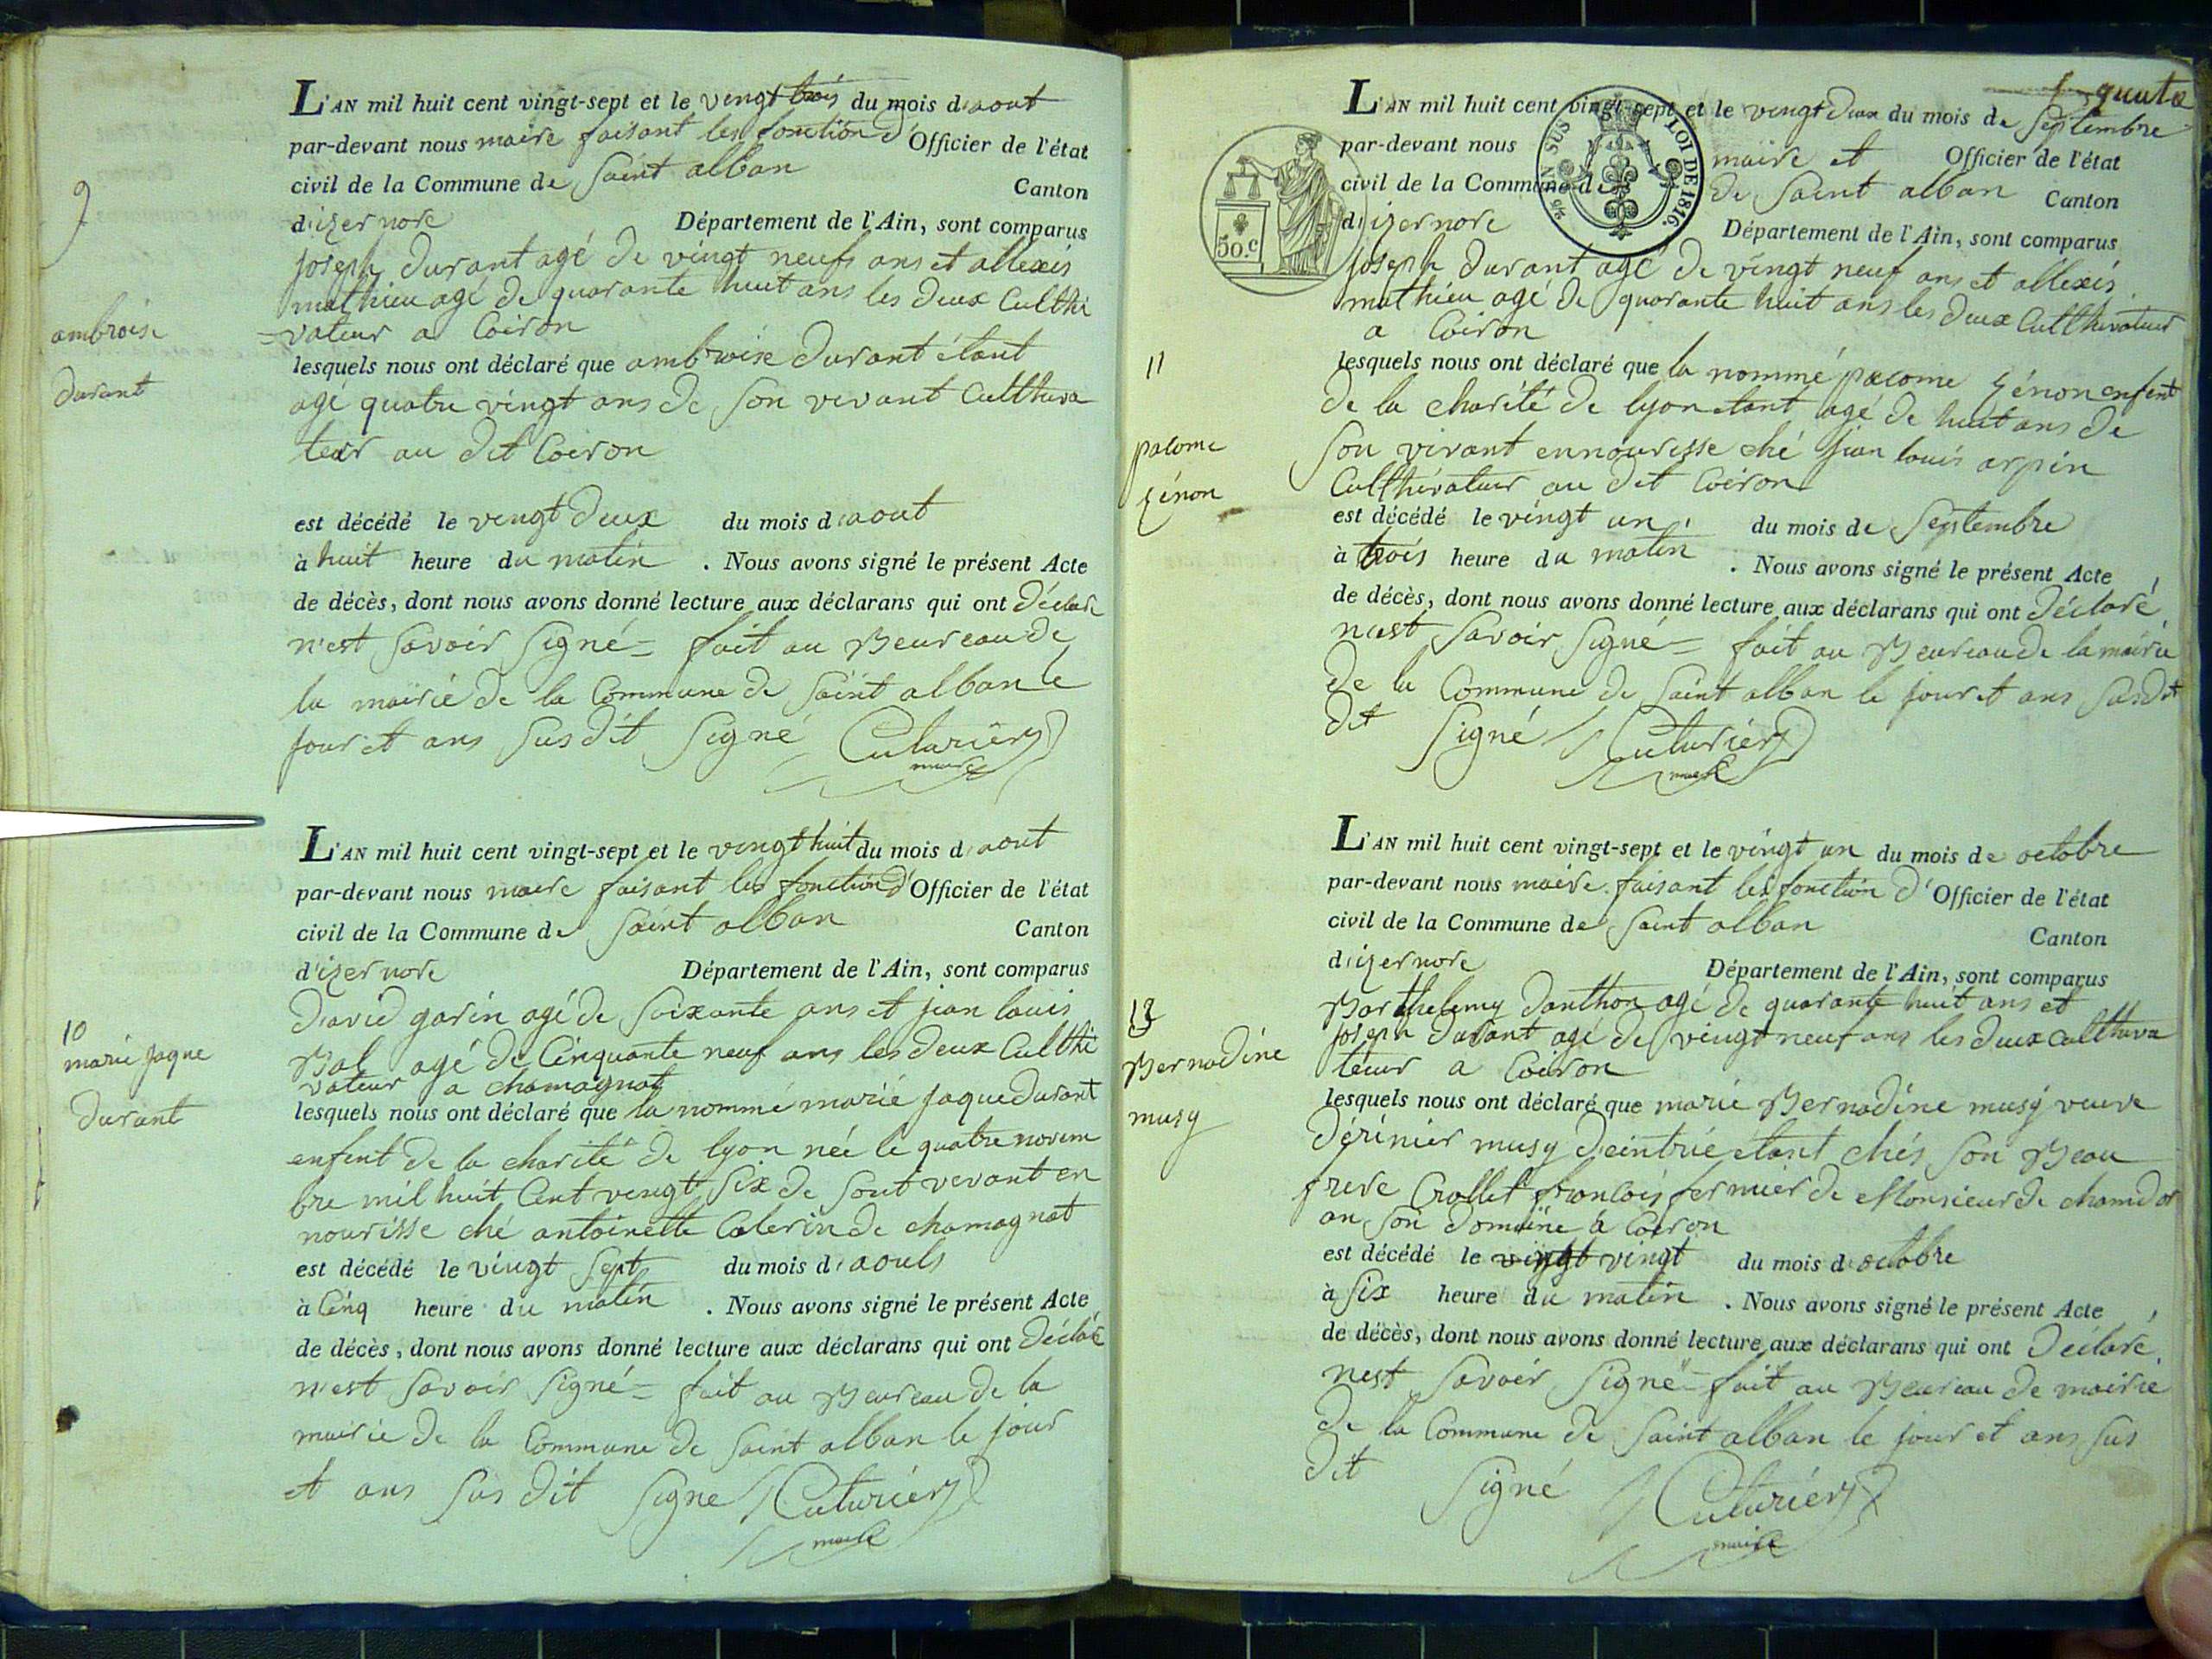 9
ambroise
durant
L'AN mil huit cent vingt-sept et le vengt trois du mois d'aout
par-devant nous maire faisant les fonction d'Officier de l'état
civil de la Commune de Saint alban Canton
d'izernore Département de l'Ain, sont comparus
joseph durant agé de vingt neufs ans et allexis
mathieu agé de quarante huit ans les deux Culthi
=vateur a Coiron
lesquels nous ont déclaré que ambroise durant étant
agé quatre vingt ans de son vevant Culthiva
teur au dit Coiron
est décédé le vengt deux du mois d'aout
à huit heure du matin . Nous avons signé le présent Acte
de décès, dont nous avons donné lecture aux déclarans qui ont déclaré
n'est savoir signé = fait au Beureau de
la mairie de la Commune de Saint alban le
jour et ans sus dit signé Cuturiery
maire
10
marie jaque
durant
L'AN mil huit cent vingt-sept et le vengt huit du mois d'aout
par-devant nous maire faisant les fonction d'Officier de l'état
civil de la Commune de Saint alban Canton
d'izernore Département de l'Ain, sont comparus
david garin agé de soixante ans et jian louis
Bal agé de Cinquante neuf ans les deux Culthi
vateur a chamagnat
lesquels nous ont déclaré que la nommé marie jaque durant
enfent de la charité de lyon née le quatre novem
bre mil huit Cent vengt six de sont vevant en
nourisse ché antoinette Calerin de chamagnat
est décédé le vingt sept du mois d'aouts
à Cinq heure du matin . Nous avons signé le présent Acte
de décès, dont nous avons donné lecture aux déclarans qui ont déclaré
n'est savoir signé = fait au Beureau de la
mairie de la Commune de Saint alban le jour
et ans sus dit signe Cuturiery
maire
LOI DE 1816.
50.c
11
pacome
génon
L'AN mil huit cent vingt-sept et le vengt deux du mois de septembre
par-devant nous maire et Officier de l'état
civil de la Commune de de Saint alban Canton
d'izernore Département de l'Ain, sont comparus
joseph durant agé de vingt neuf ans et allexis
mathieu agé de quarante huit ans les deux Culthivateur
a Coiron
lesquels nous ont déclaré que la nommé pacome génon enfent
de la charité de lyon etant agé de huit ans de
son vivant ennourisse ché jian louis arpin
Culthivateur au dit Coiron
est décédé le vingt un du mois de septembre
à trois heure du matin . Nous avons signé le présent Acte
de décès, dont nous avons donné lecture aux déclarans qui ont déclaré
n'est savoir signé = fait au Beureau de la mairie
de la Commune de Saint alban le jour et ans susdit
dit signé Cuturiery
maire
Bernadine
musy
L'AN mil huit cent vingt-sept et le vingt un du mois de octobre
par-devant nous maire faisant les fonction d'Officier de l'état
civil de la Commune de Saint alban Canton
d'izernore Département de l'Ain, sont comparus
Barthelemy danthon agé de quarante huit ans et
joseph durant agé de vingt neuf ans les deux culthiva
teur a Coiron
lesquels nous ont déclaré que marie Bernadine musy veuve
musy étant chés son Beau
frere Crollet francois fermier de Monsieur de
an son domaine a Coiron
est décédé le vingt vingt du mois d'octobre
à six heure du matin . Nous avons signé le présent Acte
de décès, dont nous avons donné lecture aux déclarans qui ont déclaré
nest savoir signé = fait au Beureau de mairie
de la Commune de Saint alban le jour et ans sus
dit signé Cuturiery
maire